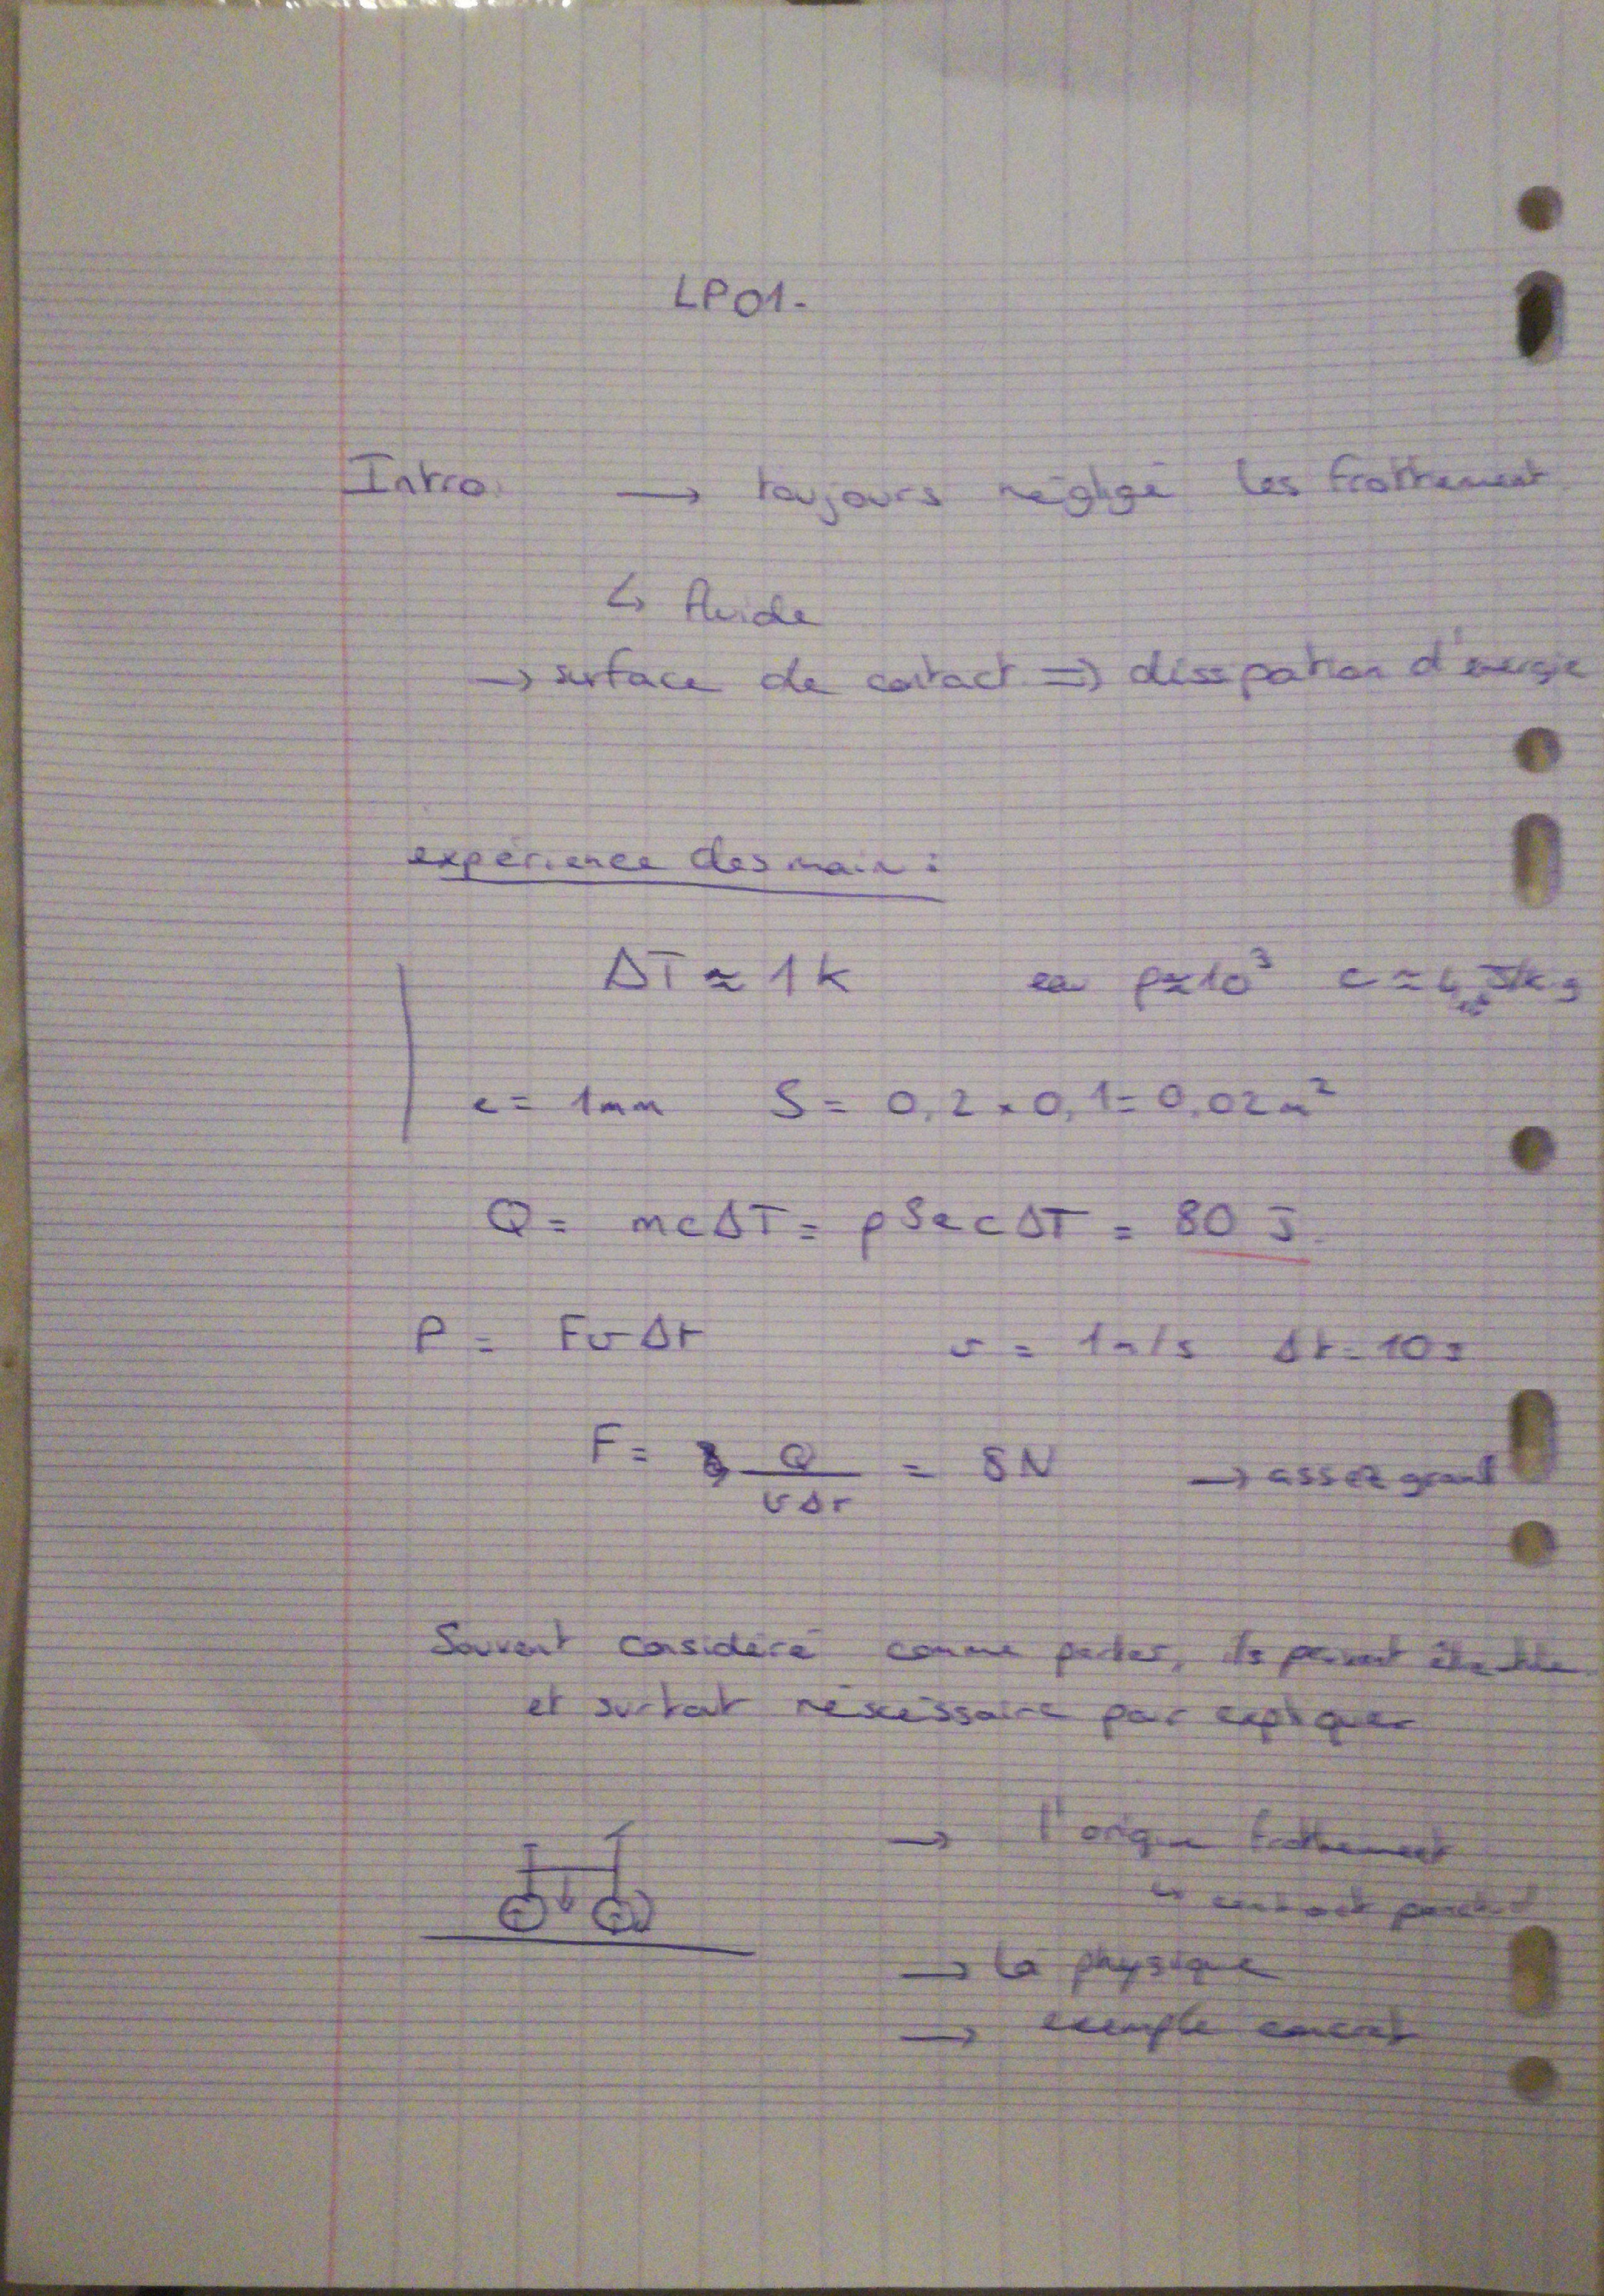 LP01.
Intro. → toujours négligé les frottement
↳ fluide
→ surface de contact ⇒ dissipation d'énergie
expérience des main :
ΔT ≈ 1K ρ≈10³ c ≈ 4 J/kg
e = 1mm S = 0,2 × 0,1 = 0,02 m²
Q = mcΔT = ρSecΔT = 80 J.
P = FvΔt v = 1m/s Δt = 10s
F = Q/vΔt = 8N → assez grand
Souvent considéré comme pertes, ils peuvent être
et surtout néscessaire pour expliquer
→ l'origine frottement
↳ contact
→ la physique
→ exemple concret